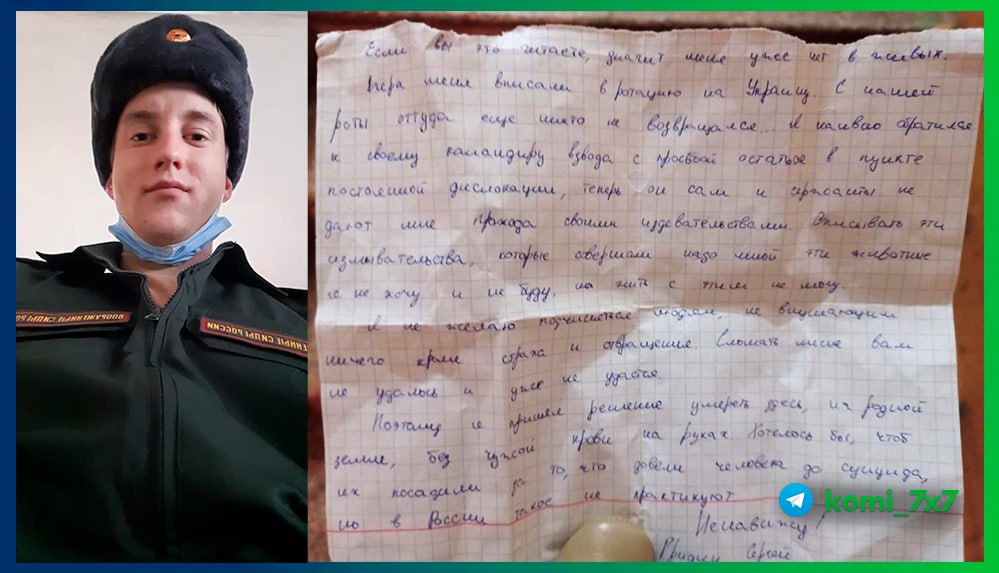 ВООРУЖЕННЫЕ СИЛЫ
ЕННЫЕ СИЛЫ РОССИИ
Если вы это читаете, значит меня уже нет в живых.
Вчера меня вписали в ротацию на Украину. С нашей
роты оттуда еще никто не возвращался... Я наивно обратился
к своему командиру взвода с просьбой остаться в пункте
постоянной дислокации, теперь он сам и сржанты не
дают мне прохода своими издевательствами. Описывать эти
измывательства, которые совершали надо мной эти животные
я не хочу и не буду, но жить с этим не могу.
Я не желаю подчиняться людям, не внушающим
ничего кроме страха и отвращения. Сломать меня вам
не удалось и уже не удастся.
Поэтому я принял решение умереть здесь, на родной
земле, без чужой крови на руках. Хотелось бы, чтоб
их посадили за то, что довели человека до суицида,
но в России такое не практикуют
Ненавижу!
Сергей
komi_7x7